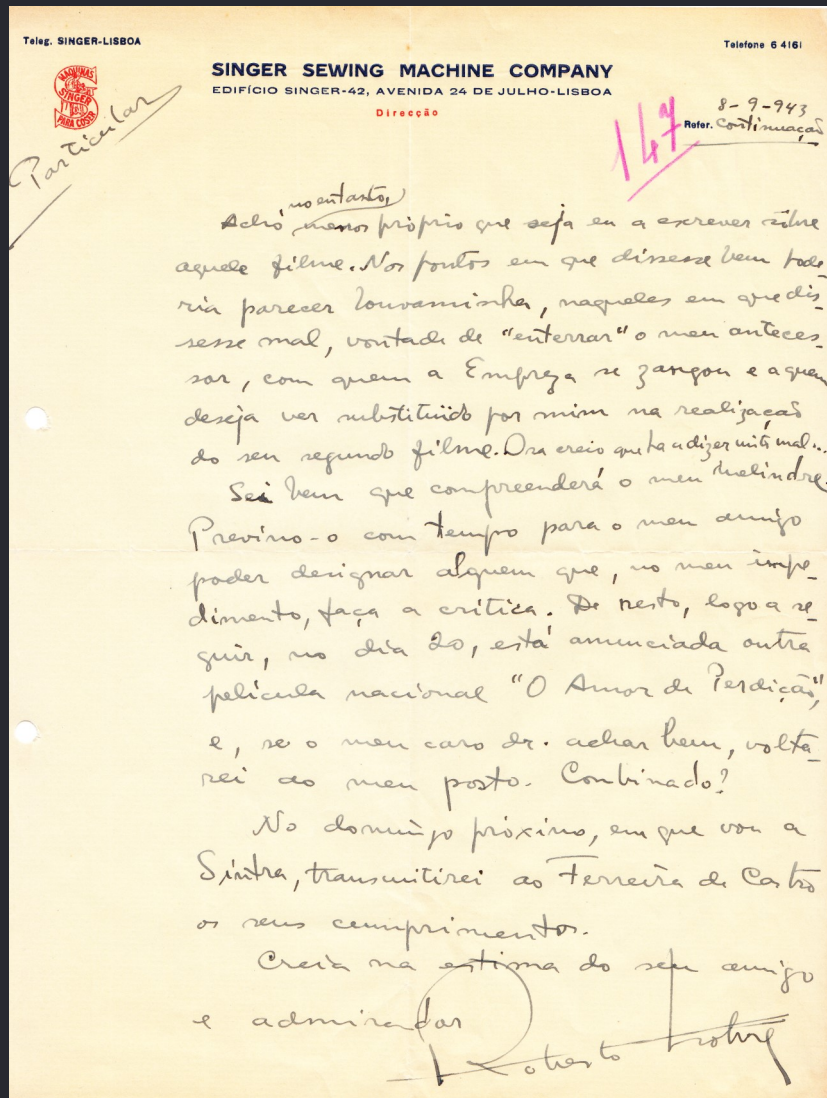 Teleg. SINGER-LISBOA
Telefone 6 4161
MAQUINAS
SINGER
PARA COSER
SINGER SEWING MACHINE COMPANY
EDIFÍCIO SINGER-42, AVENIDA 24 DE JULHO-LISBOA
Direcção
147
8-9-943
Refer. continuação
Particular
no entanto,
Acho menos próprio que seja eu a escrever sôbre
aquele filme. Nos pontos em que dissesse bem pode-
ria parecer louvaminha, naqueles em que dis-
sesse mal, vontade de "enterrar" o meu anteces-
sor, com quem a Empreza se zangou e a quem
deseja ver substituído por mim na realização
do seu segundo filme. Ora creio que há a dizer muito mal...
Sei bem que compreenderá o meu melindre.
Previno-o com tempo para o meu amigo
poder designar alguem que, no meu impe-
dimento, faça a critica. De resto, logo a se-
guir, no dia 20, está anunciada outra
película nacional "O Amor de Perdição",
e, se o meu caro dr. achar bem, volta-
rei ao meu posto. Combinado?
No domingo próximo, em que vou a
Sintra, transmitirei ao Ferreira de Castro
os seus cumprimentos.
Creia na estima do seu amigo
e admirador
Roberto Nobre